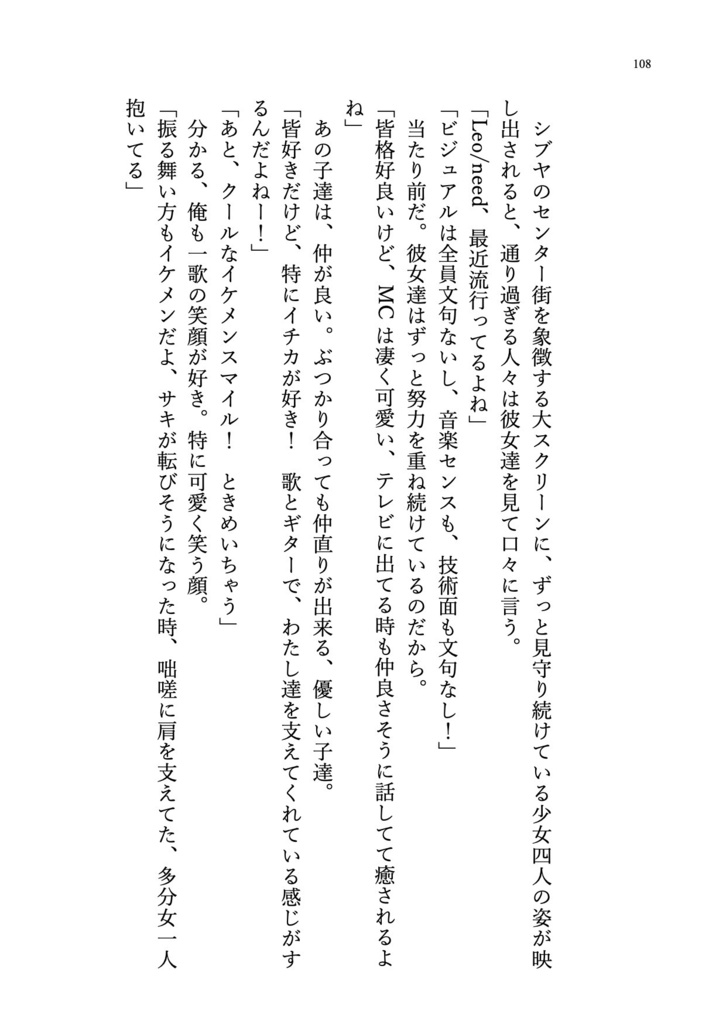 108
　シブヤのセンター街を象徴する大スクリーンに、ずっと見守り続けている少女四人の姿が映
し出されると、通り過ぎる人々は彼女達を見て口々に言う。
「Leo/need、最近流行ってるよね」
「ビジュアルは全員文句ないし、音楽センスも、技術面も文句なし！」
　当たり前だ。彼女達はずっと努力を重ね続けているのだから。
「皆格好良いけど、MCは凄く可愛い、テレビに出てる時も仲良さそうに話してて癒されるよ
ね」
　あの子達は、仲が良い。ぶつかり合っても仲直りが出来る、優しい子達。
「皆好きだけど、特にイチカが好き！　歌とギターで、わたし達を支えてくれている感じがす
るんだよねー！」
「あと、クールなイケメンスマイル！　ときめいちゃう」
　分かる、俺も一歌の笑顔が好き。特に可愛く笑う顔。
「振る舞い方もイケメンだよ、サキが転びそうになった時、咄嗟に肩を支えてた、多分女一人
抱いてる」